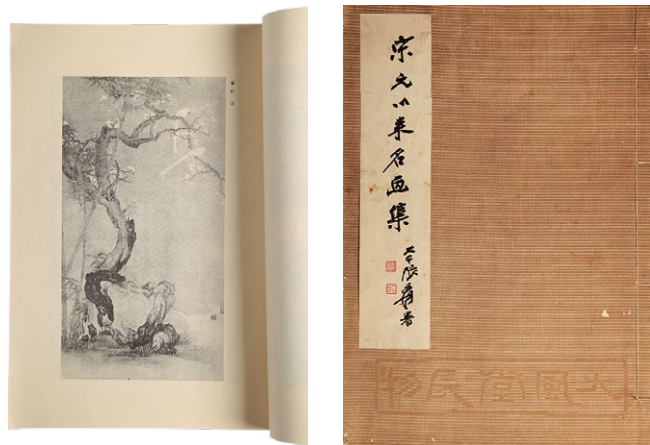 宋元以来名画集
大千張爰署
大風堂長物